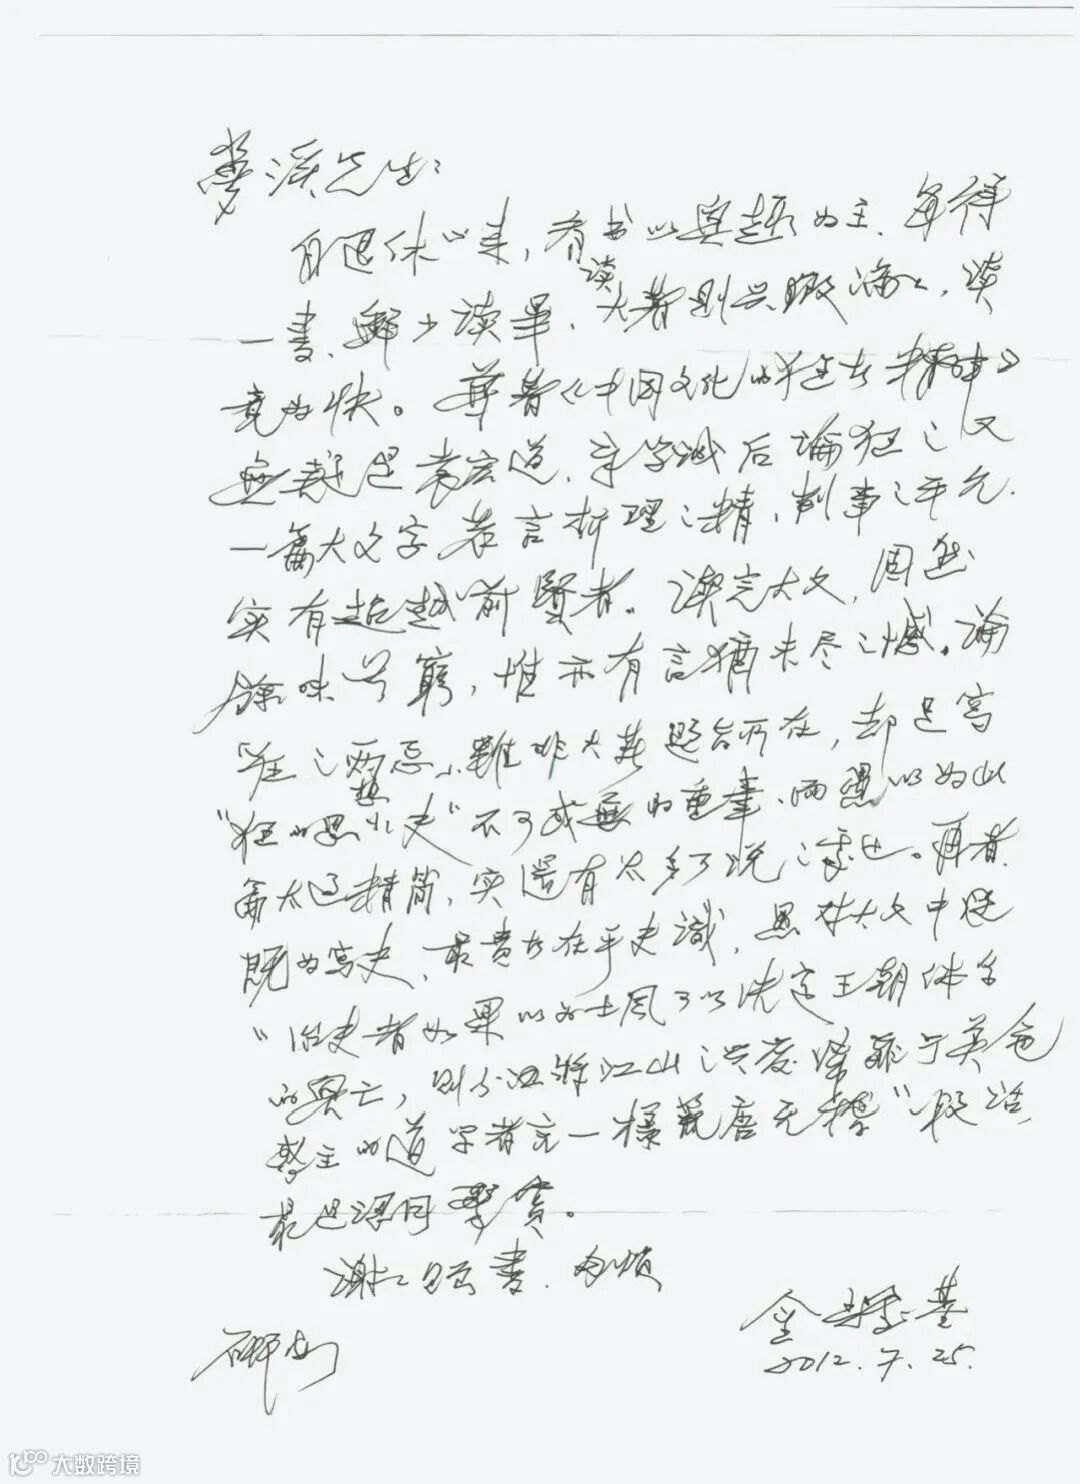 梦溪先生：
自退休以来，看书以兴趣为主，每得
一书，鲜少读毕，读大著则兴致浓浓，读
竟为快。尊著《中国文化的狂者精神》
无疑是袁宏道、章学诚后论狂之又
一篇大文字，若言析理之精，判事之平允，
实有超越前贤者。读完大文，固然
馀味无穷，惟亦有言犹未尽之憾。论
狂之两忌，虽非大著题旨所在，却是写
“狂的思想小史”不可或无的重笔，而愚以为此
篇太过精简，实还有太多可说之处也。再者，
既为写史，最贵者在乎史识，愚对大文中从
“治史者如果以为士风可以决定王朝体系
的兴亡，则不啻将江山之兴废归罪于
的道学者言一样荒唐无稽”一段话，
最是认同击赏。
谢谢赠书，即颂
研安
金耀基
2012.7.25.
大数跨境